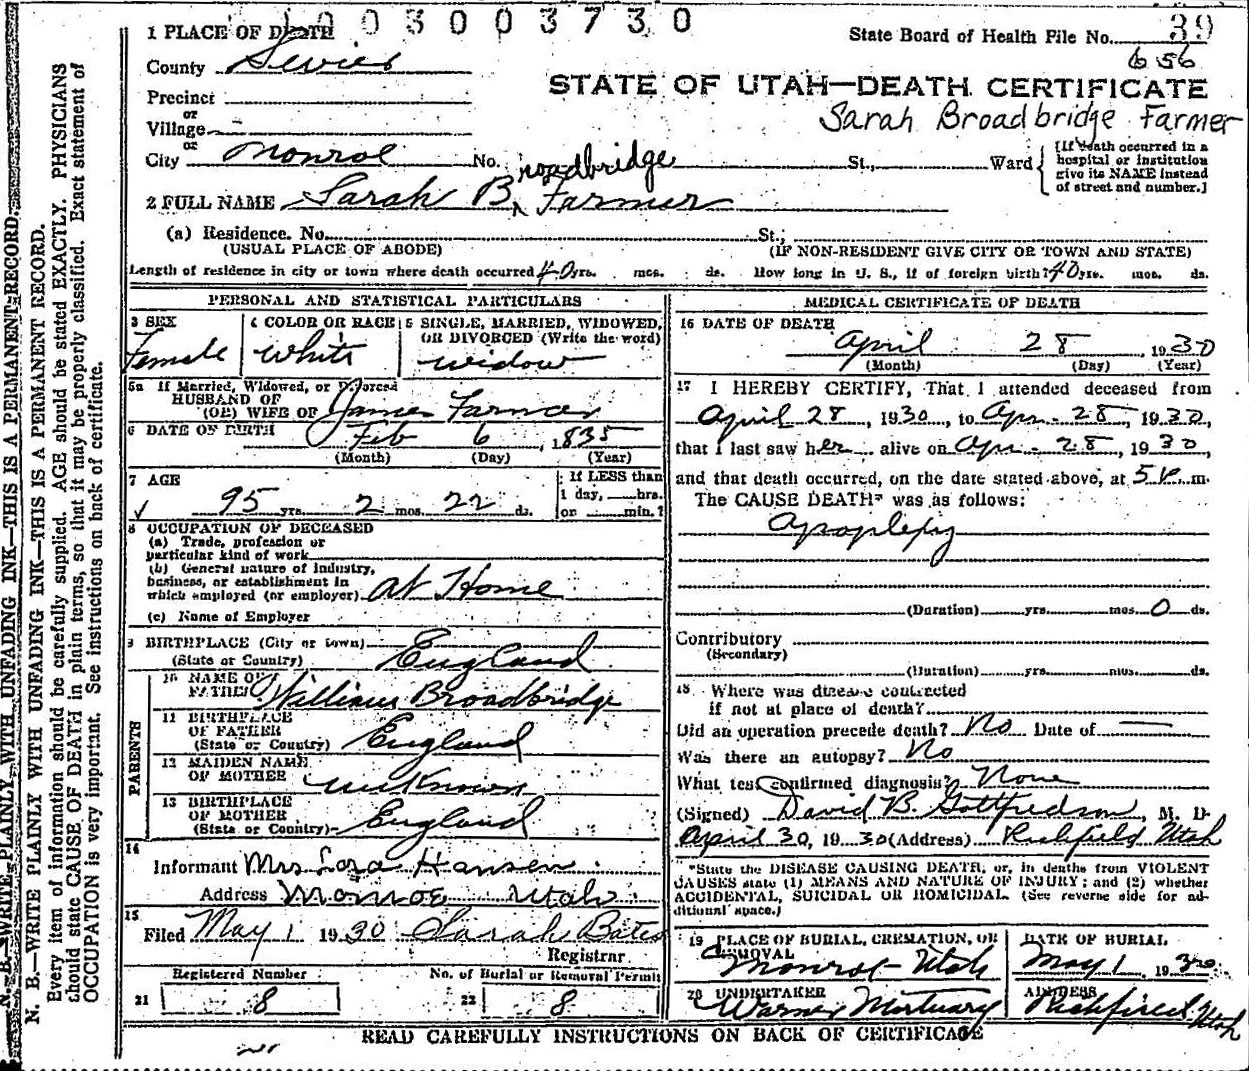 1003003730
1 PLACE OF DEATH
State Board of Health File No. 39
656
County Sevier
STATE OF UTAH—DEATH CERTIFICATE
Precinct
Sarah Broadbridge Farmer
or
Village
or
City Monroe No. St., Ward
[If death occurred in a hospital or institution give its NAME instead of street and number.]
roadbridge
2 FULL NAME Sarah B. Farmer
(a) Residence. No. St.,
(USUAL PLACE OF ABODE) (IF NON-RESIDENT GIVE CITY OR TOWN AND STATE)
Length of residence in city or town where death occurred 40 yrs. mos. ds. How long in U. S., if of foreign birth? 40 yrs. mos. ds.
PERSONAL AND STATISTICAL PARTICULARS
3 SEX
Female
4 COLOR OR RACE
White
5 SINGLE, MARRIED, WIDOWED,
OR DIVORCED (Write the word)
widow
5a If Married, Widowed, or Divorced
HUSBAND OF
(OR) WIFE OF James Farmer
6 DATE OF BIRTH Feb 6, 1835
(Month) (Day) (Year)
7 AGE
95 yrs. 2 mos. 22 ds.
If LESS than
1 day, hrs.
or min.?
8 OCCUPATION OF DECEASED
(a) Trade, profession or
particular kind of work
(b) General nature of industry,
business, or establishment in
which employed (or employer) at Home
(c) Name of Employer
9 BIRTHPLACE (City or town)
(State or Country) England
PARENTS
10 NAME OF
FATHER William Broadbridge
11 BIRTHPLACE
OF FATHER
(State or Country) England
12 MAIDEN NAME
OF MOTHER unknown
13 BIRTHPLACE
OF MOTHER
(State or Country) England
14
Informant Mrs Lora Hansen
Address Monroe Utah
15
Filed May 1 1930 Sarah Bates
Registrar
Registered Number
21 8
No. of Burial or Removal Permit
22 8
MEDICAL CERTIFICATE OF DEATH
16 DATE OF DEATH
April 28, 1930
(Month) (Day) (Year)
17 I HEREBY CERTIFY, That I attended deceased from
April 28, 1930, to Apr. 28, 1930,
that I last saw her alive on Apr. 28, 1930,
and that death occurred, on the date stated above, at 5 P. m.
The CAUSE DEATH* was as follows:
Apoplexy
(Duration) yrs. mos. 0 ds.
Contributory
(Secondary)
(Duration) yrs. mos. ds.
18 Where was disease contracted
if not at place of death?
Did an operation precede death? No Date of —
Was there an autopsy? No
What test confirmed diagnosis? None
(Signed) David B. Gottfredson, M. D.
April 30, 1930 (Address) Richfield Utah
*State the DISEASE CAUSING DEATH, or, in deaths from VIOLENT
CAUSES state (1) MEANS AND NATURE OF INJURY; and (2) whether
ACCIDENTAL, SUICIDAL OR HOMICIDAL. (See reverse side for ad-
ditional space.)
19 PLACE OF BURIAL, CREMATION, OR
REMOVAL
Monroe - Utah
DATE OF BURIAL
May 1, 1930
20 UNDERTAKER
Warner Mortuary
ADDRESS
Richfield Utah
READ CAREFULLY INSTRUCTIONS ON BACK OF CERTIFICATE
N. B.—WRITE PLAINLY WITH UNFADING INK—THIS IS A PERMANENT RECORD.
N. B.—WRITE PLAINLY WITH UNFADING INK—THIS IS A PERMANENT RECORD.
Every item of information should be carefully supplied. AGE should be stated EXACTLY. PHYSICIANS
should state CAUSE OF DEATH in plain terms, so that it may be properly classified. Exact statement of
OCCUPATION is very important. See instructions on back of certificate.